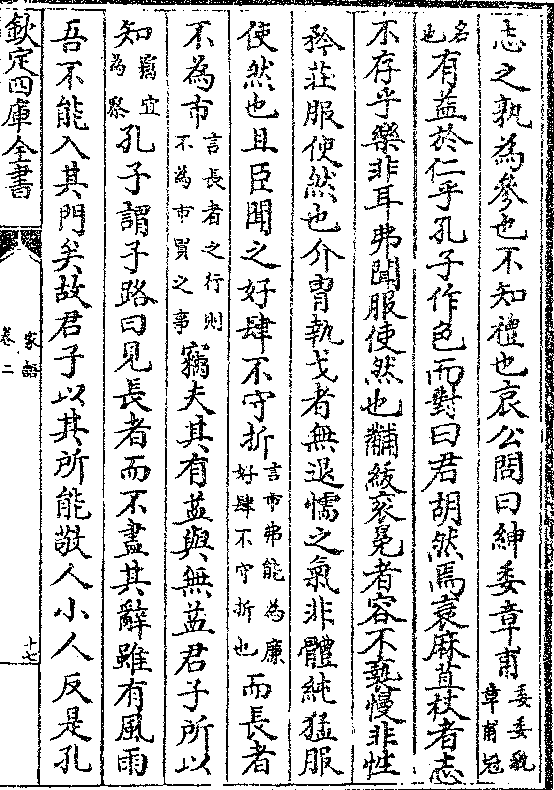 志之孰為參也不知禮也哀公問曰紳委章甫委委貌章甫冠
名也有益於仁乎孔子作色而對曰君胡然焉衰麻苴杖者志
不存乎樂非耳弗聞服使然也黼紱衮冕者容不䙝慢非性
矜莊服使然也介胄執戈者無退懦之氣非體純猛服
使然也且臣聞之好肆不守折言市弗能為廉好肆不守折也而長者
不為市言長者之行則不為市買之事竊夫其有益與無益君子所以
知竊宜為察孔子謂子路曰見長者而不盡其辭雖有風雨
吾不能入其門矣故君子以其所能敬人小人反是孔
欽定四庫全書
家語
卷二
十七